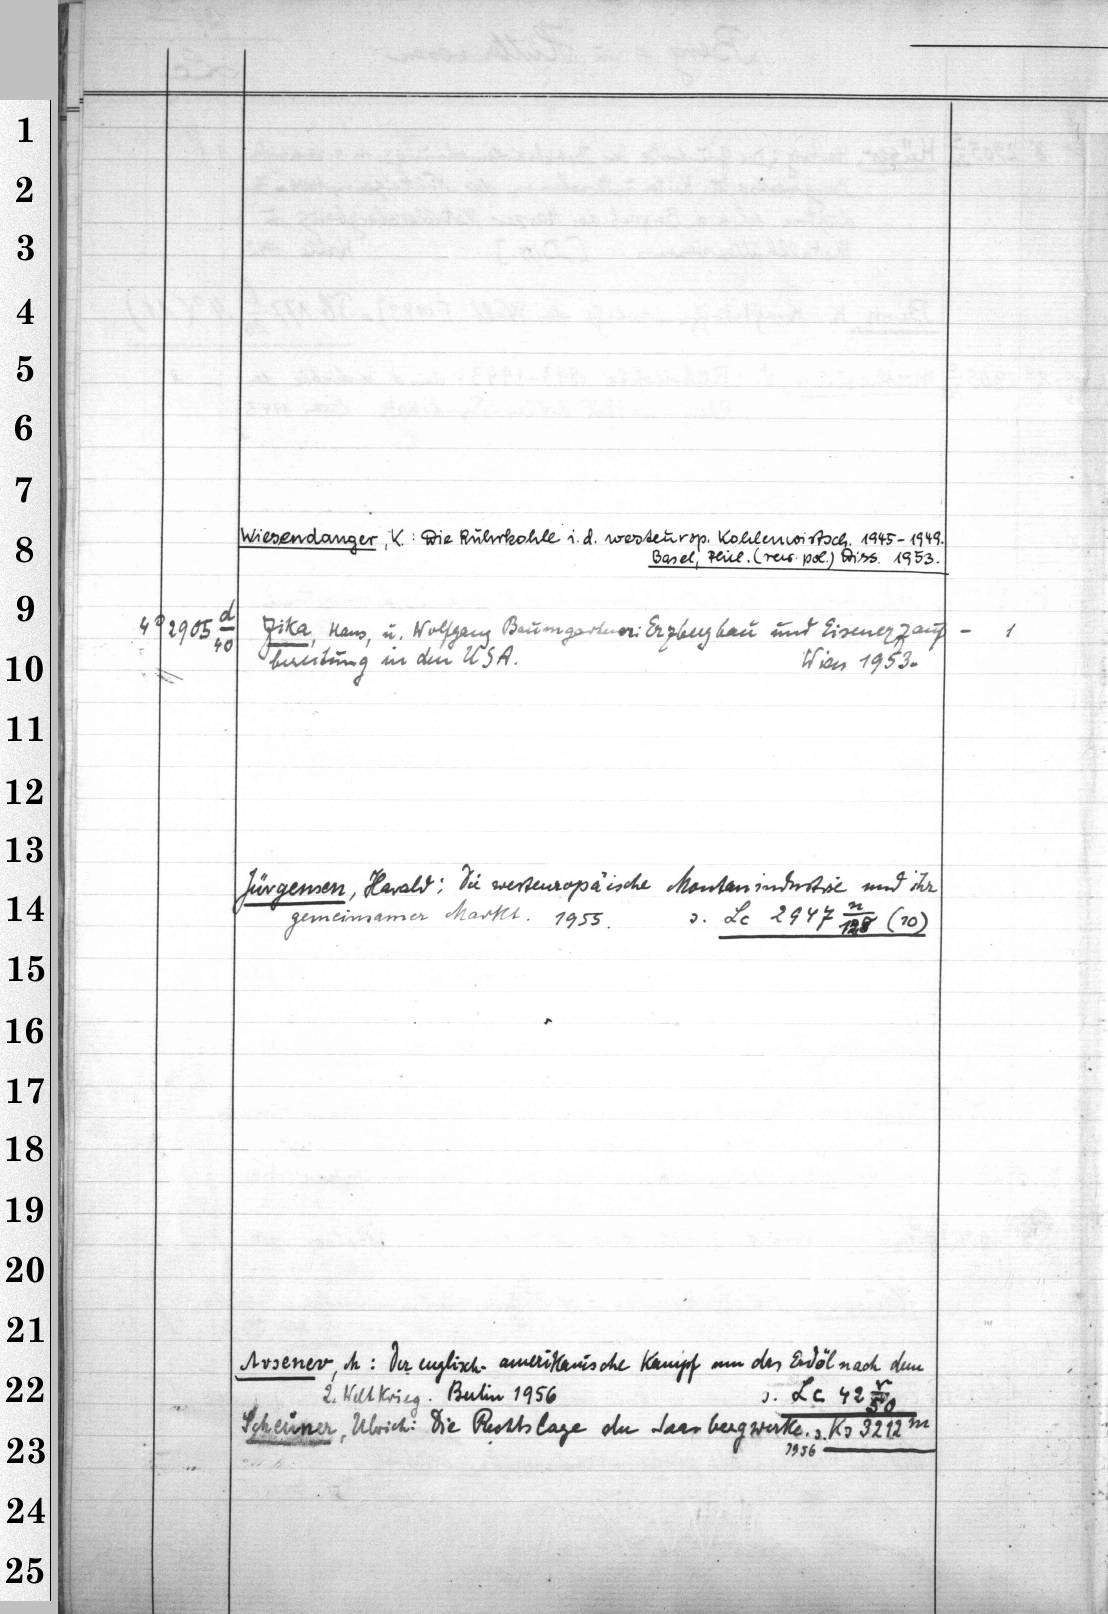 1
2
3
4
5
6
7
8
Wiesendanger, K.: Die Ruhrkohle i. d. westeurop. Kohlenwirtsch. 1945-1949.
Basel, Phil. (rer. pol.) Diss. 1953.
9
4° 2905 d/40 Zika, Hans, u. Wolfgang Baumgartner: Erzbergbau und Eisenerzauf- 1
10
bereitung in den USA. Wien 1953.
11
12
13
Jürgensen, Harald: Die westeuropäische Montanindustrie und ihr
14
gemeinsamer Markt. 1955. s. Lc 2947 n/128 (10)
15
16
17
18
19
20
21
Arsenev, M: Der englisch-amerikanische Kampf um das Erdöl nach dem
22
2. Weltkrieg. Berlin 1956 s. Lc 42 r/50
Scheuner, Ulrich: Die Rechtslage der Saarbergwerke. s. Ks 3212 m
23
1956
24
25